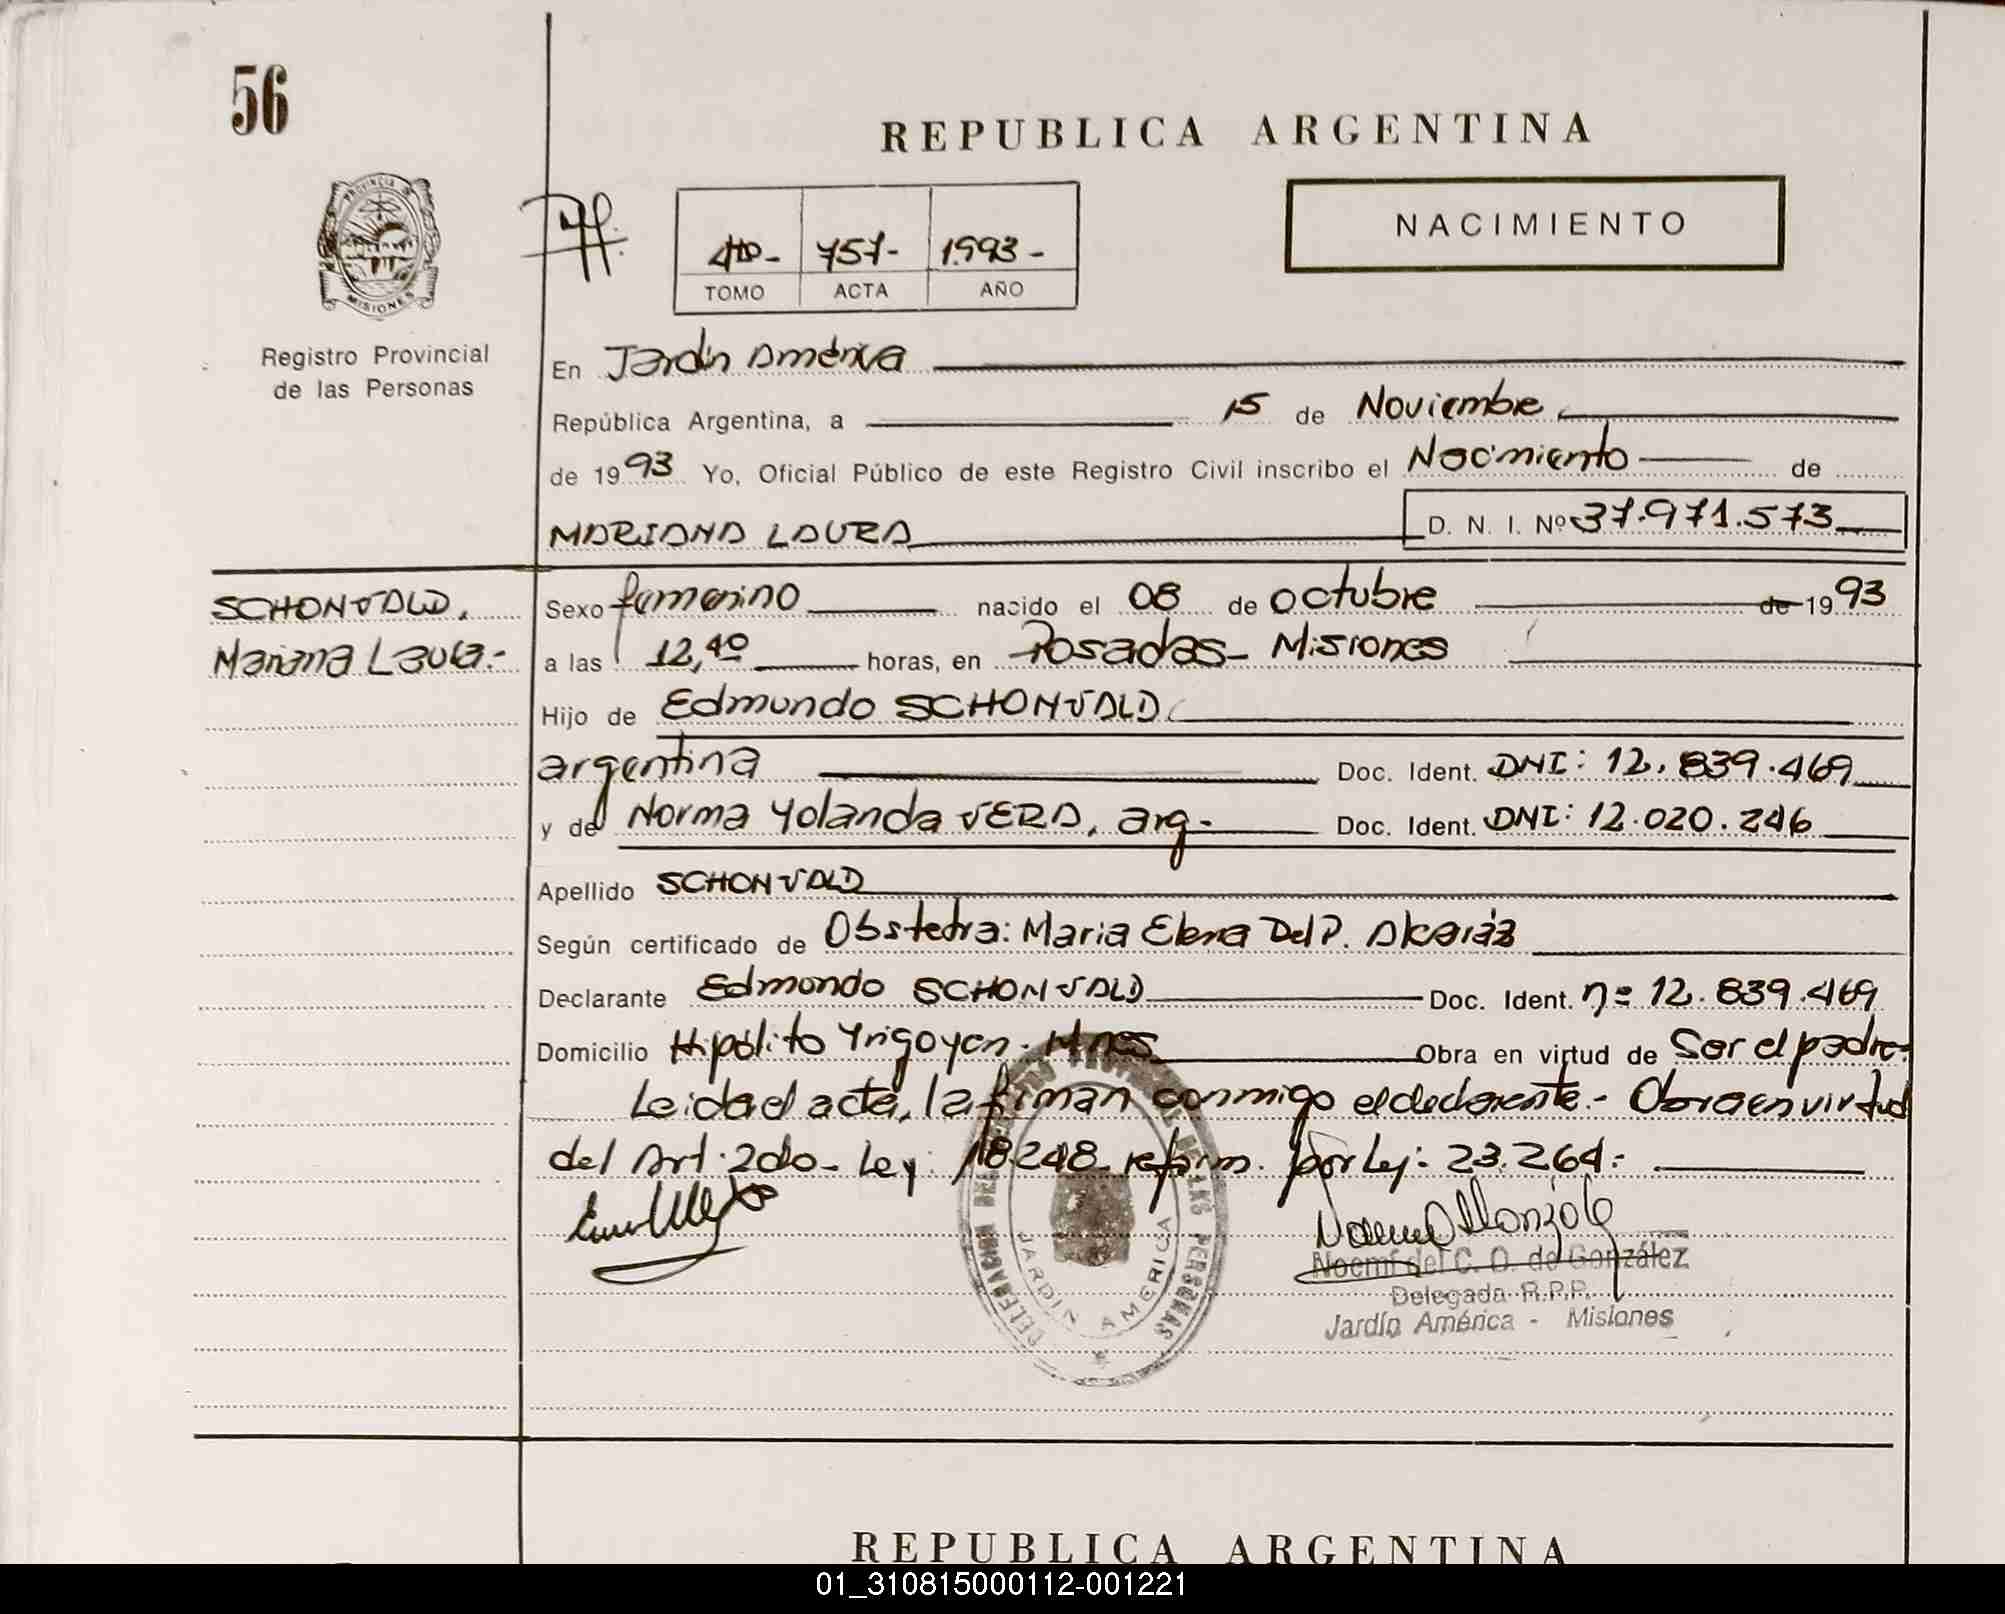 56
REPUBLICA ARGENTINA
NACIMIENTO
4to- 757- 1993-
TOMO ACTA AÑO
PROVINCIA DE
MISIONES
Registro Provincial
de las Personas
En Jardín América
República Argentina, a 15 de Noviembre
de 1993 Yo, Oficial Público de este Registro Civil inscribo el Nacimiento de
MARIANA LAURA D. N. I. Nº 37.971.573
SCHONVALD,
Mariana Laura.-
Sexo femenino nacido el 08 de octubre de 1993
a las 12,40 horas, en Posadas- Misiones
Hijo de Edmundo SCHONVALD
argentina Doc. Ident. DNI: 12.839.469
y de Norma Yolanda VERA, arg- Doc. Ident. DNI: 12.020.246
Apellido SCHONVALD
Según certificado de Obstetra: Maria Elena Del P. Alcaráz
Declarante Edmondo SCHONVALD Doc. Ident. n= 12.839.469
Domicilio Hipólito Yrigoyen. Mnes Obra en virtud de Ser el padre.
Leida el acta, la firman conmigo el declarante.- Obra en virtud
del Art. 2do- Ley: 18.248 reform. por Ley: 23.264:
DELEGACION DEL DE LAS PERSONAS
JARDIN AMERICA
Noemí del C. O. de González
Delegada R.P.P.
Jardín América - Misiones
REPUBLICA ARGENTINA
01_310815000112-001221